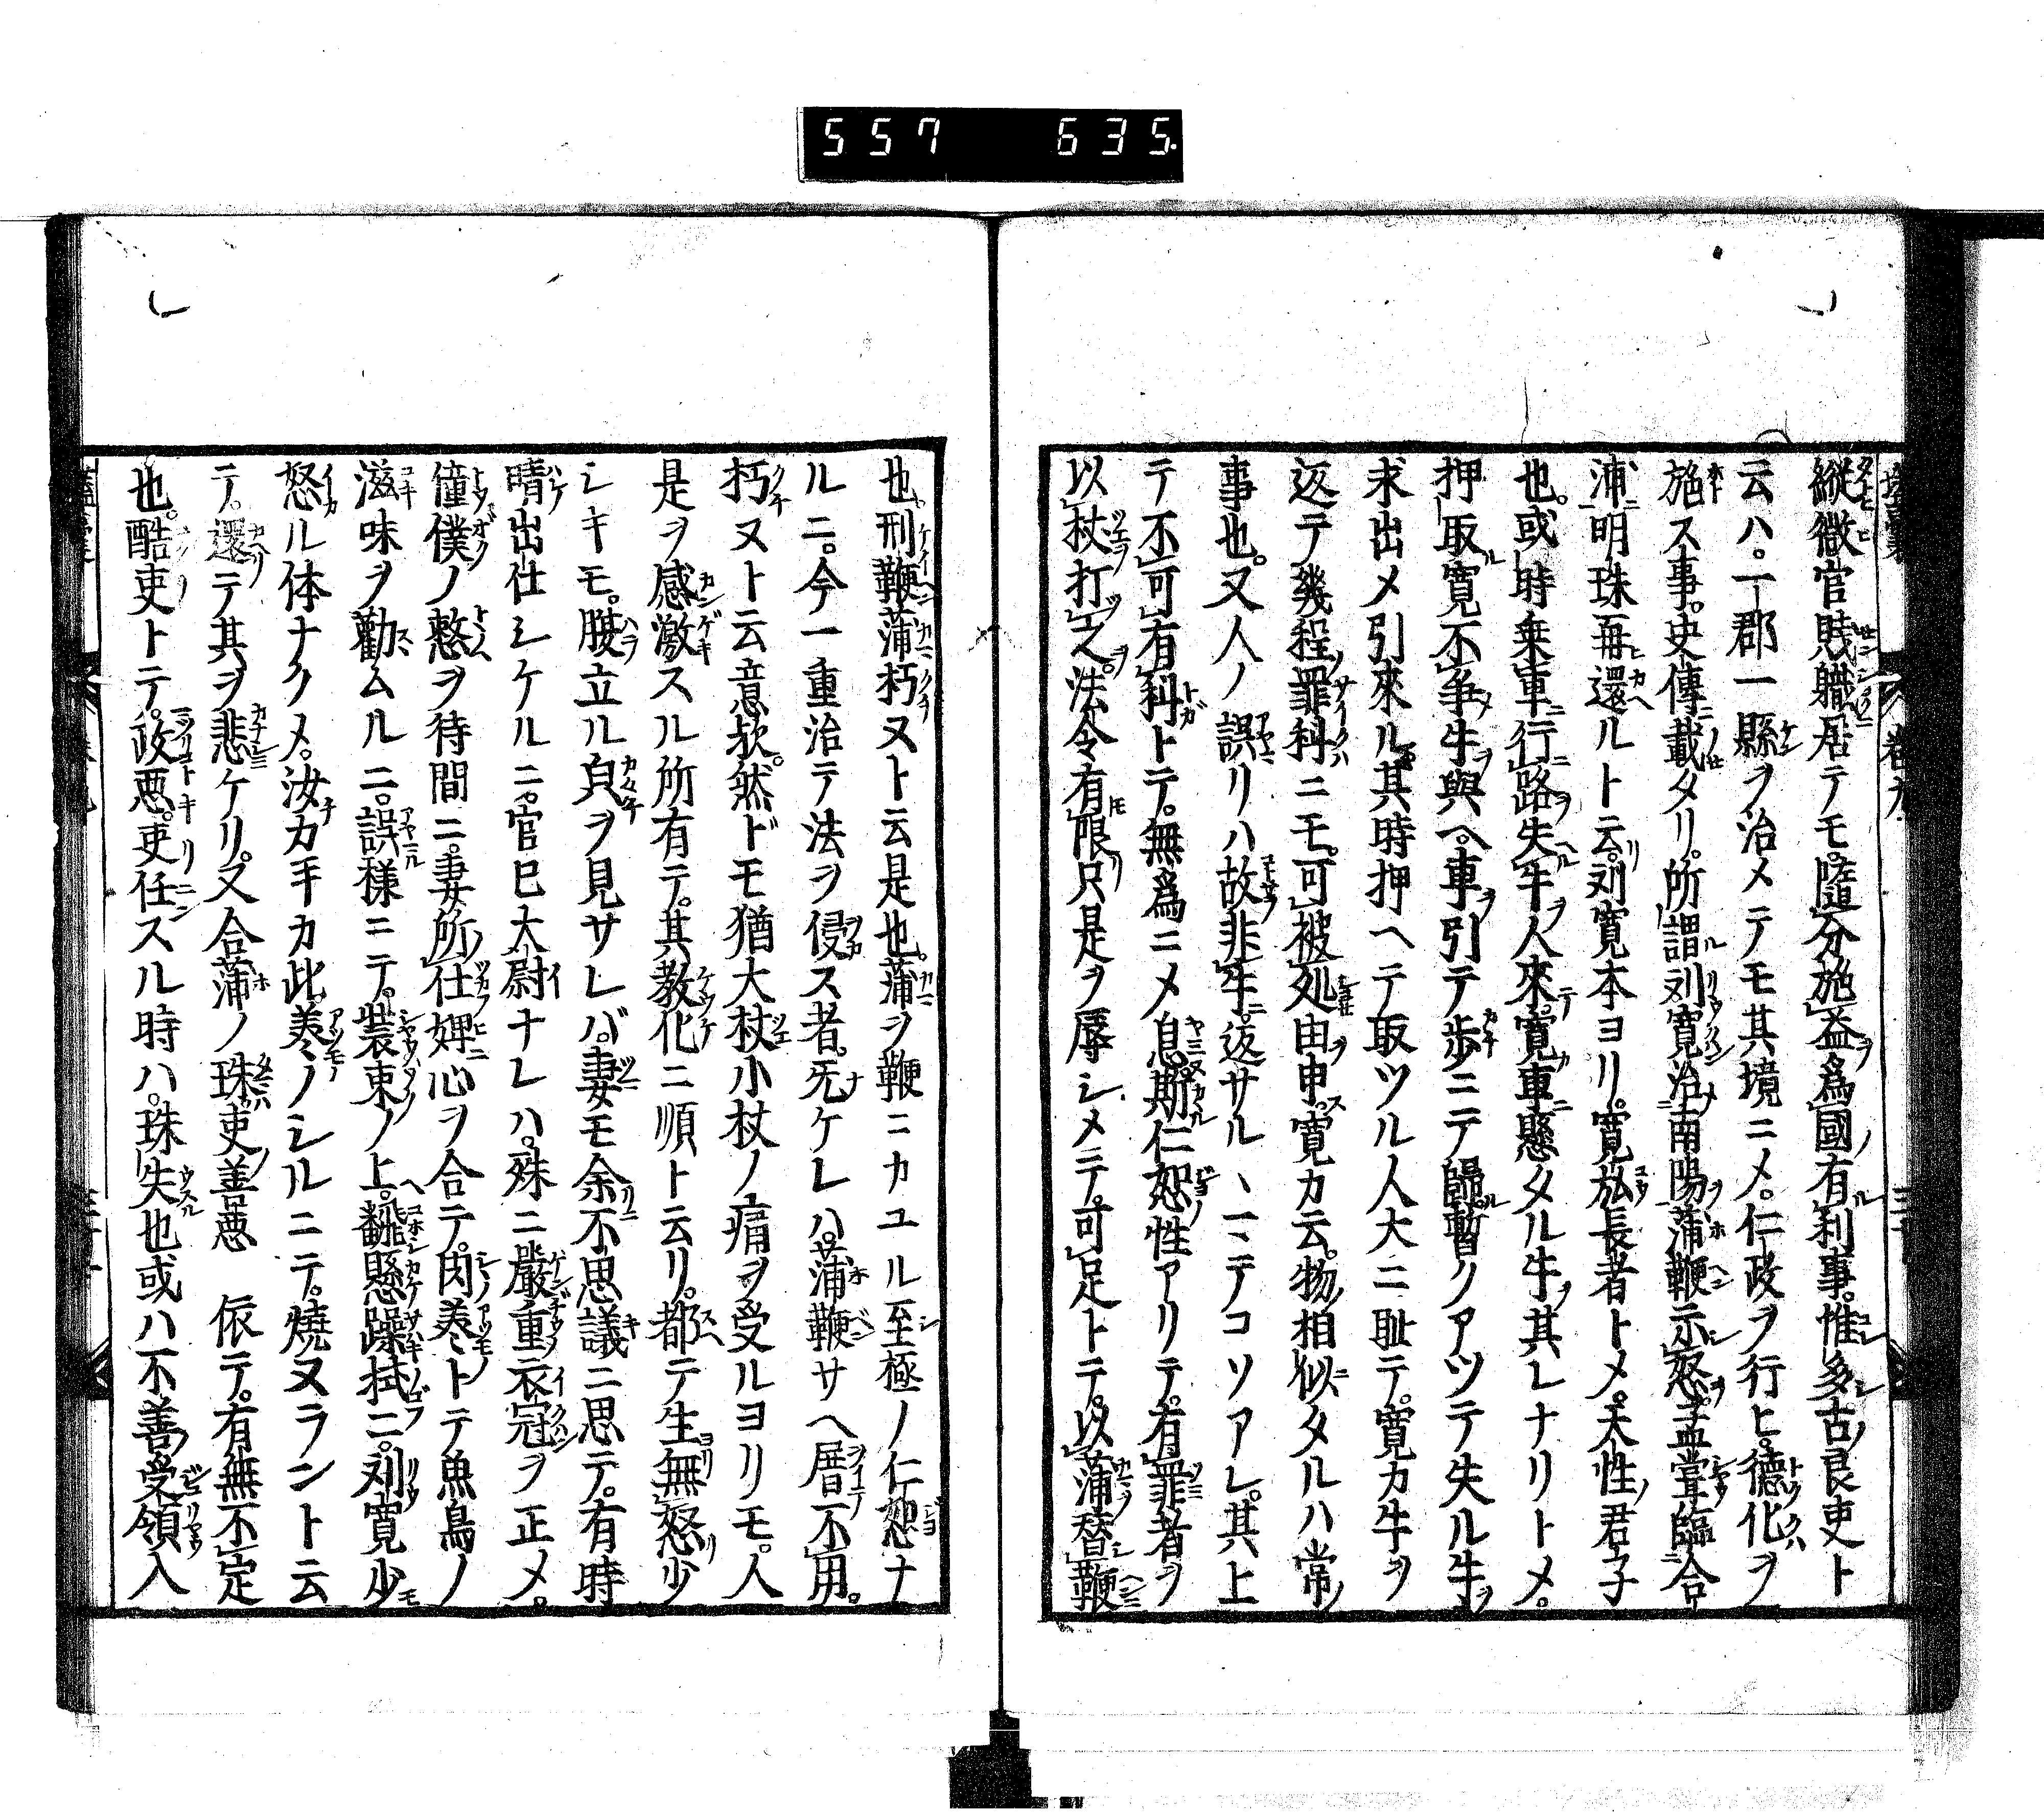 557 635.
縱微官賤職居テモ。隨分施益爲國有利事。惟多古ノ良吏ト
云ハ。一郡一縣ヲ治メテモ其境ニメ。仁政ヲ行ヒ。德化ヲ
施ス事。史傳ニ載タリ。所謂刘寛治南陽蒲鞭示怒。孟甞臨合
浦明珠再還ルト云リ。刘寛本ヨリ。寛厷長者トメ。天性ノ君子
也。或時乗車行路失牛人來テ。寛カ車ニ懸タル牛ヲ其レナリトメ。
押取寛不爭牛ヲ與ヘ。車ヲ引テ歩ニテ歸ル暫ノアツテ失ル牛ヲ
求出メ引來ル其時押ヘテ取ツル人大ニ耻テ。寛カ牛ヲ
返テ幾程ノ罪科ニモ。可被処由ヲ申ス。寛カ云。物ノ相似タルハ常ノ
事也。又人ノ誤リハ故ニ非牛ニ。返サルヽ一ニテコソアレ。其上
テ不可有科トテ。無爲ニメ息。斯ル仁恕ノ性アリテ。有罪者ヲ
以杖打之。法令有限只是ヲ辱シメテ。可足トテ。以蒲替鞭
也。刑鞭蒲朽ヌト云是也。蒲ヲ鞭ニカユル至極ノ仁恕ナ
ルニ。今一重治テ法ヲ侵ス者。旡ケレハ。蒲鞭サヘ厝テ不用。
朽ヌト云意欤。然ドモ猶大杖小杖ノ痛ヲ受ルヨリモ。人
是ヲ感激スル所有テ。其教化ニ順ト云リ。都テ生ヨリ無怒リ少
シキモ。腹立ル皃ヲ見サレバ。妻モ余リニ不思議ニ思テ。有時
晴出仕シケルニ。官巳大尉ナレハ。殊ニ嚴重衣冠ヲ正メ。
僮僕ノ憗ヲ待間ニ。妻所仕婢心ヲ合テ。肉羹トテ魚鳥ノ
滋味ヲ勸ムルニ。誤様ニテ。裝束ノ上ヘ翻懸躁拭ニ。刘寛少モ
怒ル体ナクメ。汝カ手カ此羹ノシルニテ。燒ヌラント云
テ。還テ其ヲ悲ケリ。又合蒲ノ珠ハ吏ノ善悪 依テ。有無不定
也。酷吏トテ。政悪吏任スル時ハ。珠失也或ハ不善受領入